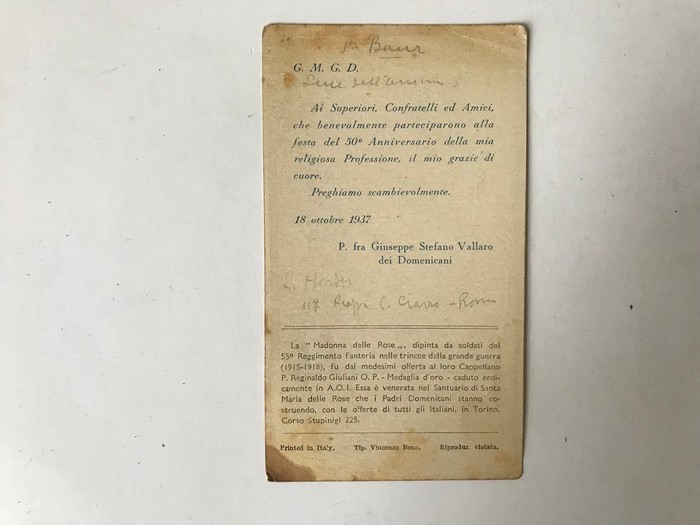 Baur
G. M. G. D.
Luce dell'anima
Ai Superiori, Confratelli ed Amici,
che benevolmente parteciparono alla
festa del 50º Anniversario della mia
religiosa Professione, il mio grazie di
cuore.
Preghiamo scambievolmente.
18 ottobre 1937
P. fra Giuseppe Stefano Vallaro
dei Domenicani
117 C. - Roma
La "Madonna delle Rose„, dipinta da soldati del
55º Reggimento Fanteria nelle trincee della grande guerra
(1915-1918), fu dai medesimi offerta al loro Cappellano
P. Reginaldo Giuliani O. P. - Medaglia d'oro - caduto eroi-
camente in A.O.I. Essa è venerata nel Santuario di Santa
Maria delle Rose che i Padri Domenicani stanno co-
struendo, con le offerte di tutti gli Italiani, in Torino,
Corso Stupinigi 225.
Printed in Italy. Tip. Vincenzo Bona. Riproduz. vietata.